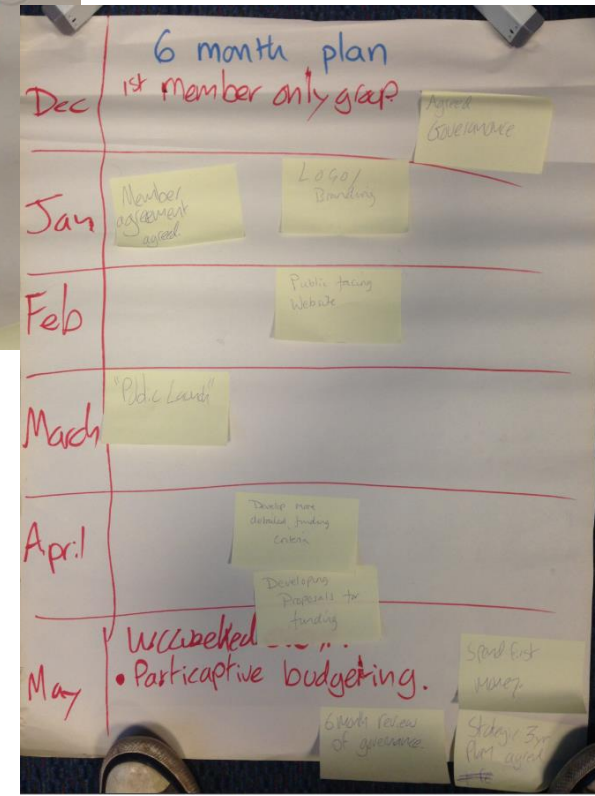 6 month plan
Dec
1st Member only group
Agreed
Governance
Jan
Member
agreement
agreed
Logo/
Branding
Feb
Public facing
Website
March
"Public Launch"
April
Develop more
detailed funding
Criteria
Developing
Proposals for
funding
May
• Particaptive budgeting.
Spend first
Money
6 month review
of governance
Strategic 3yr
Plan agreed